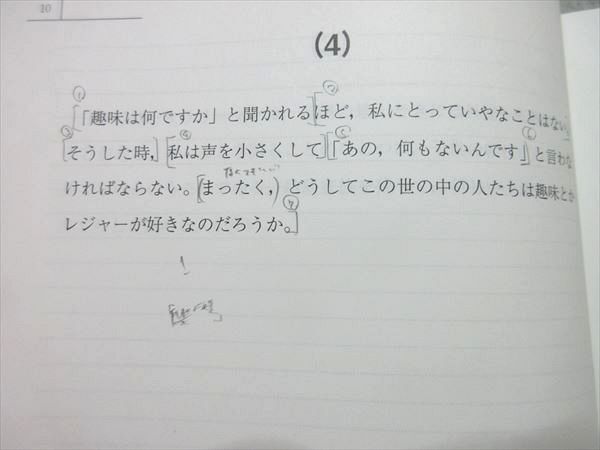 40
(4)
① ②
「趣味は何ですか」と聞かれるほど，私にとっていやなことはない。
③ ④ ⑤ ⑥
そうした時，私は声を小さくして「あの，何もないんです」と言わな
ければならない。まったく，どうしてこの世の中の人たちは趣味とか
⑦
レジャーが好きなのだろうか。